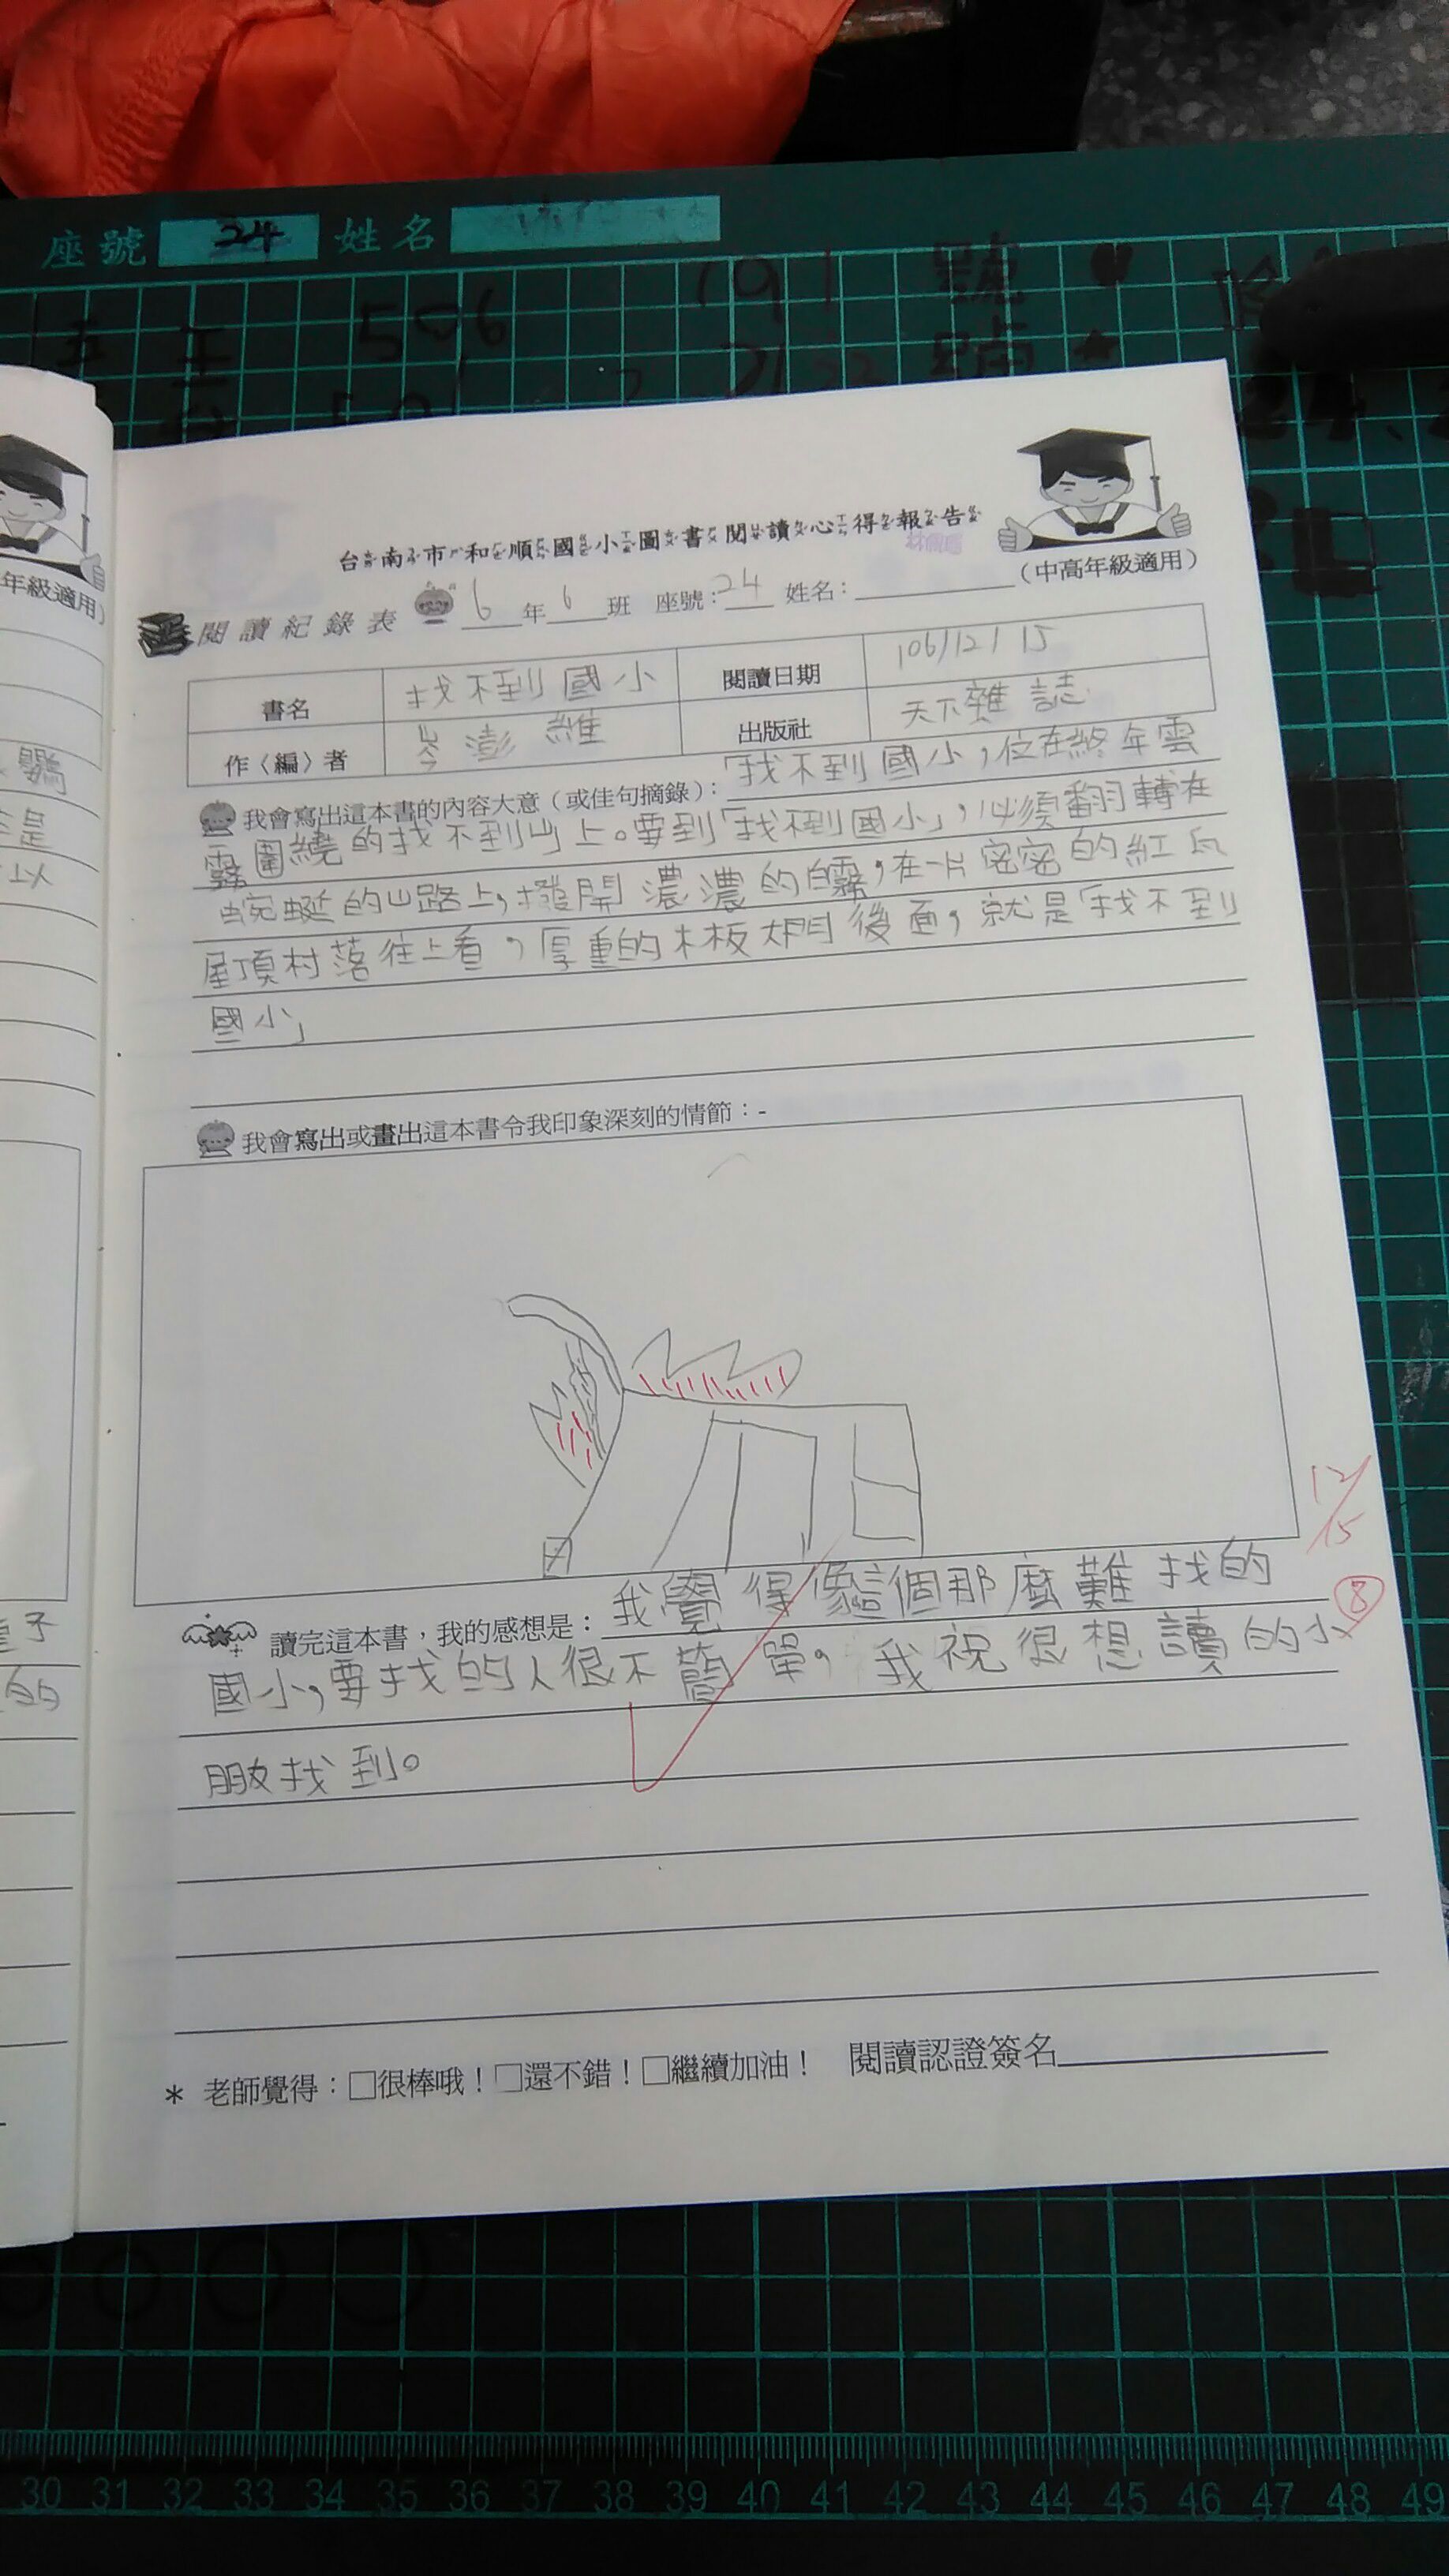 座號 24 姓名
506 191 號
台南市和順國小圖書閱讀心得報告
(中高年級適用)
年級適用)
閱讀紀錄表 6年6班 座號:24 姓名:
書名 找不到國小 閱讀日期 106/12/15
作〈編〉者 岑澎維 出版社 天下雜誌
我會寫出這本書的內容大意(或佳句摘錄):「我不到國小,位在終年雲
霧圍繞的找不到山上。要到「找不到國小」,必須翻轉在
蜿蜒的山路上,撥開濃濃的白霧,在一片密密的紅瓦
屋頂村落往上看,厚重的木板大門後面,就是「找不到
國小」
我會寫出或畫出這本書令我印象深刻的情節:-
12/15
讀完這本書,我的感想是:我覺得像這個那麼難找的
8
國小,要找的人很不簡單,我祝很想讀的小
朋友找到。
* 老師覺得:□很棒哦!□還不錯!□繼續加油! 閱讀認證簽名
30 31 32 33 34 35 36 37 38 39 40 41 42 43 44 45 46 47 48 49